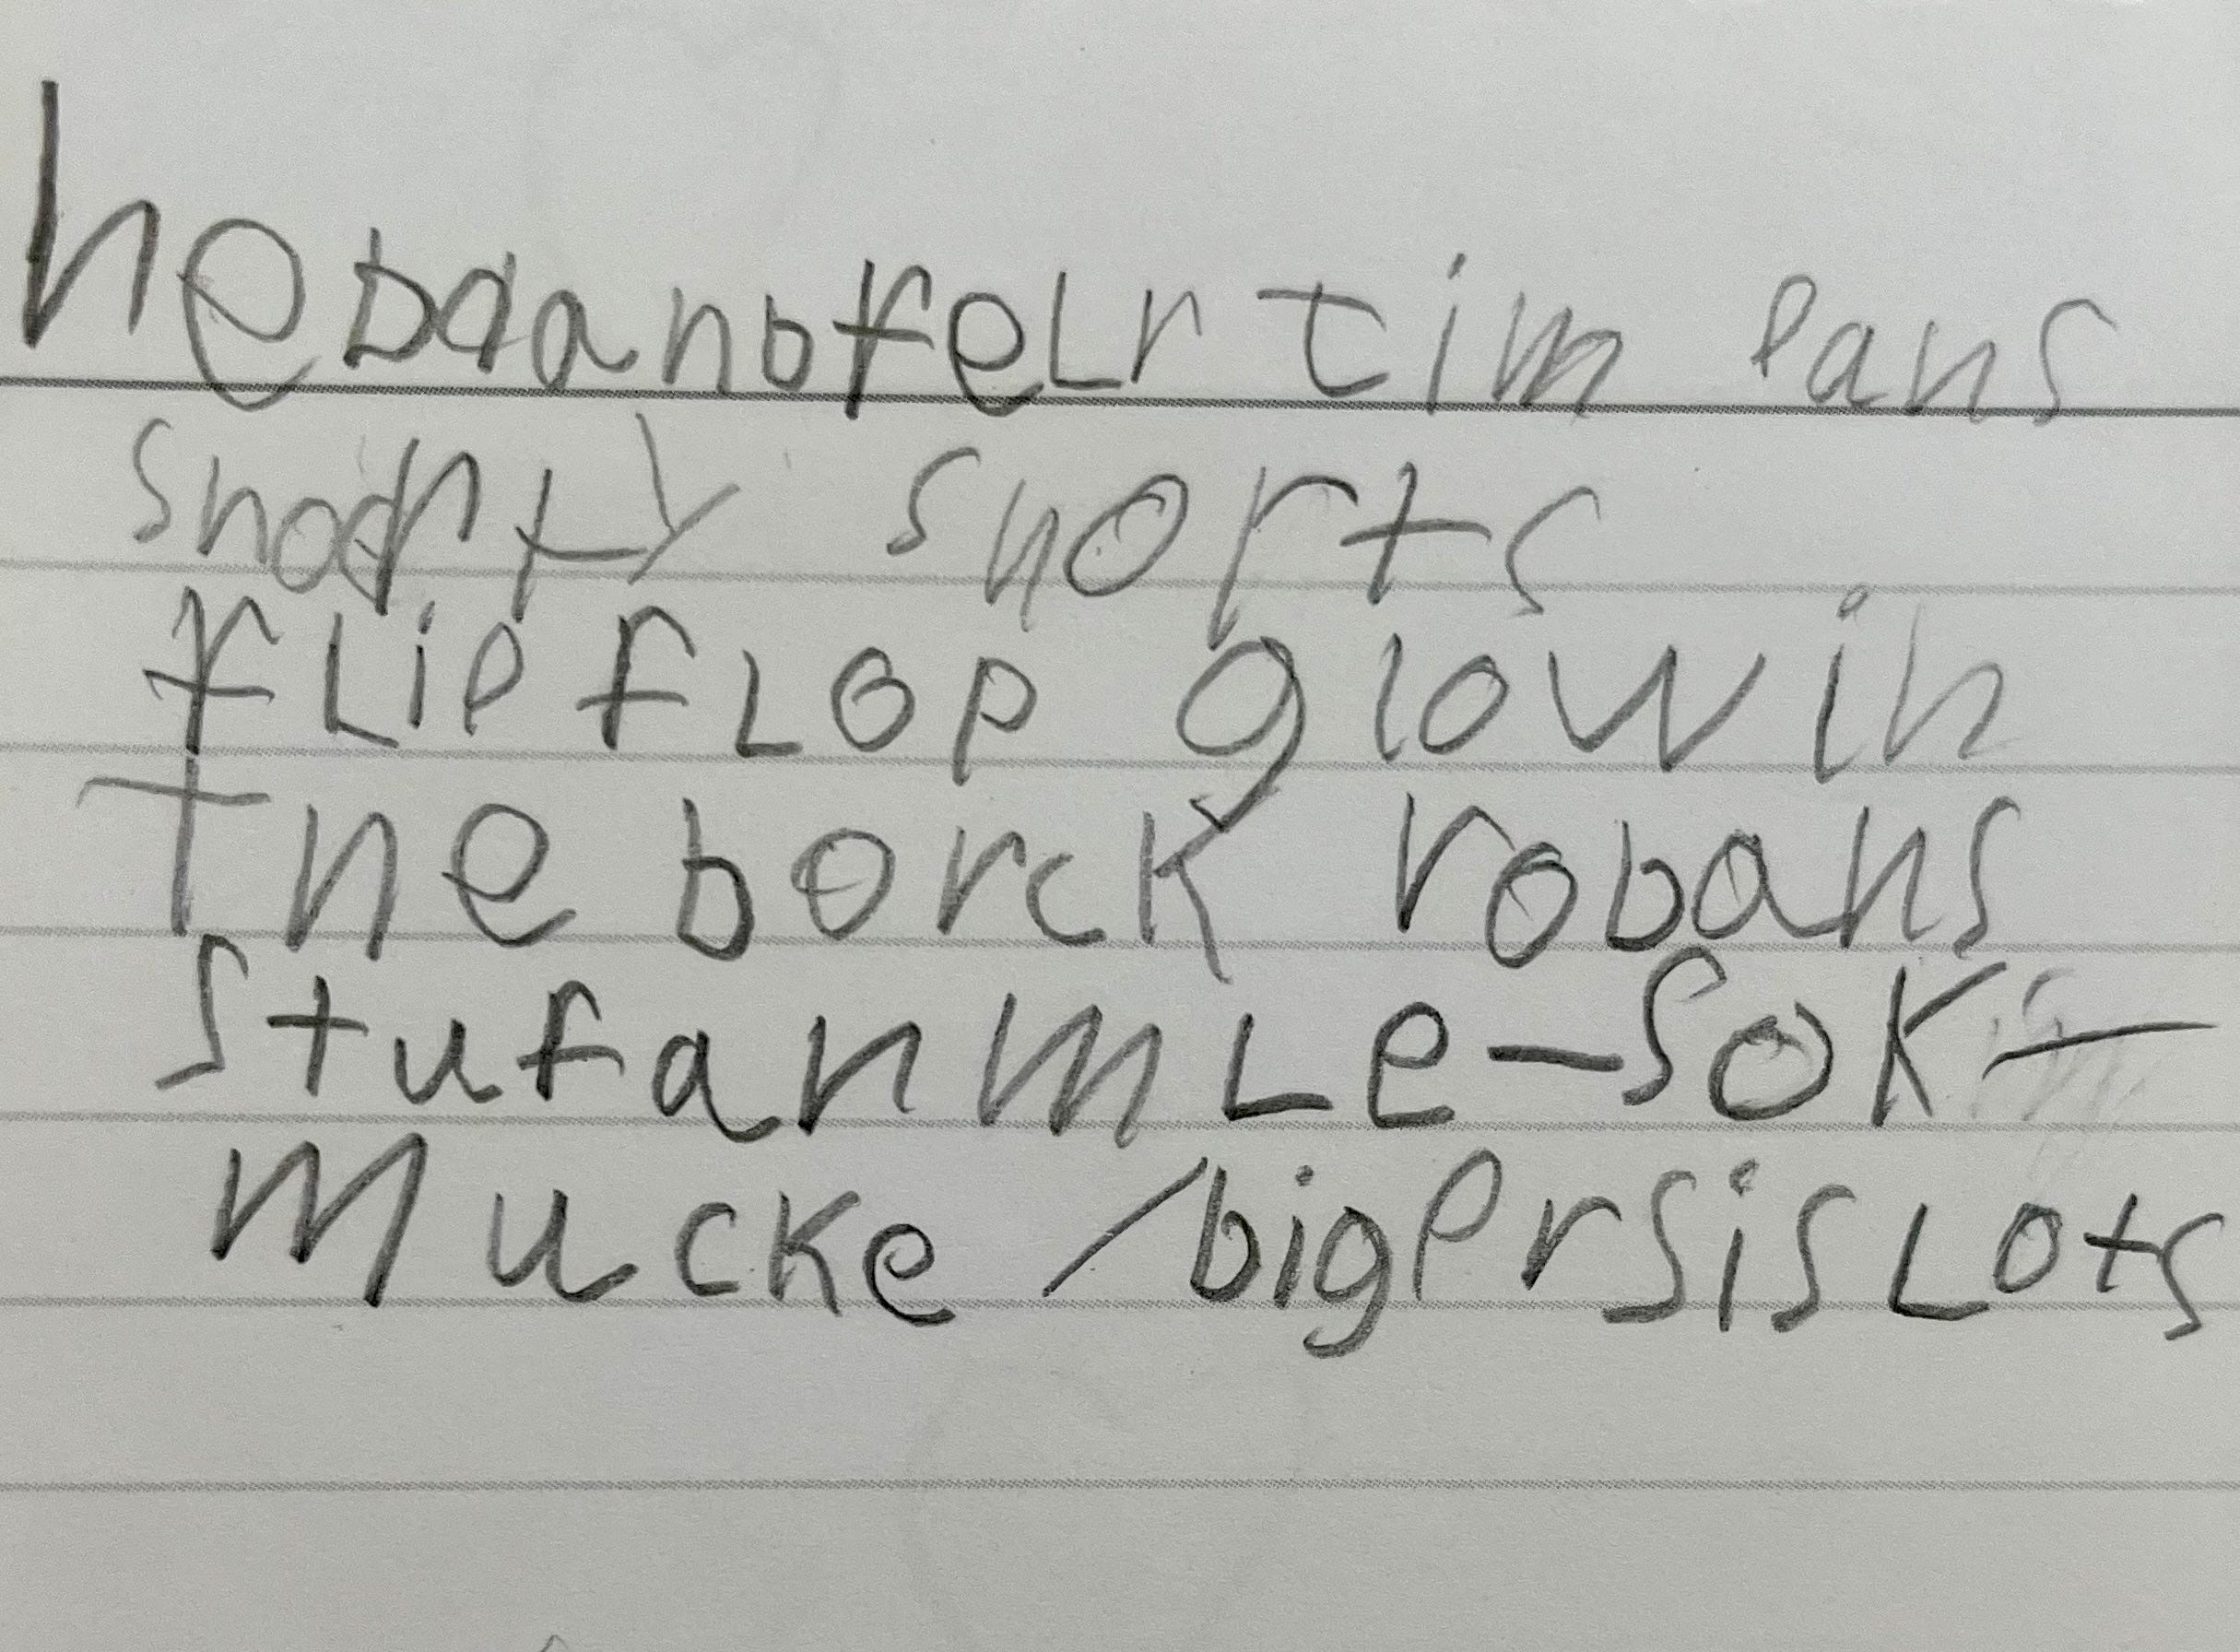 hebdanofelr tim Pans
shorty shorts
fLiPfLOP glow in
the borck robans
stufanmLe-sok-
mucke /bigPrsisLots